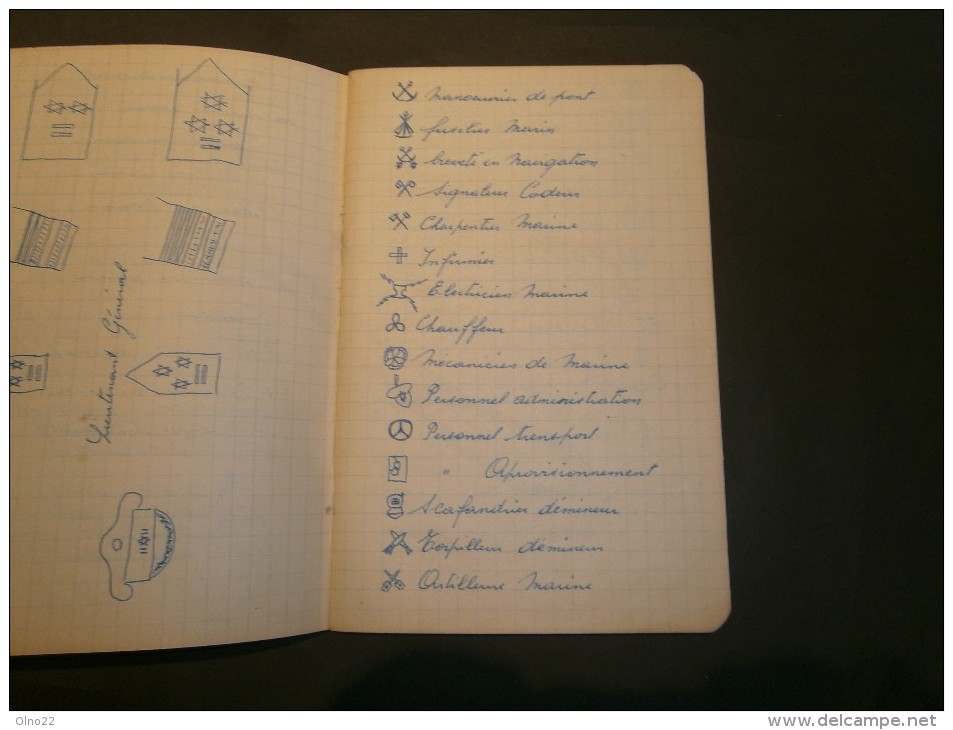 Lieutenant Général
Manoeuvrier de pont
fusilier Marin
breveté en Navigation
Signaleur Codeur
Charpentier Marine
Infirmier
Electricien Marine
Chauffeur
Mécanicien de Marine
Personnel administration
Personnel transport
" Aprovisionnement
Scafandrier démineur
Torpilleur démineur
Artillerie Marine
Olno22
www.delcampe.net